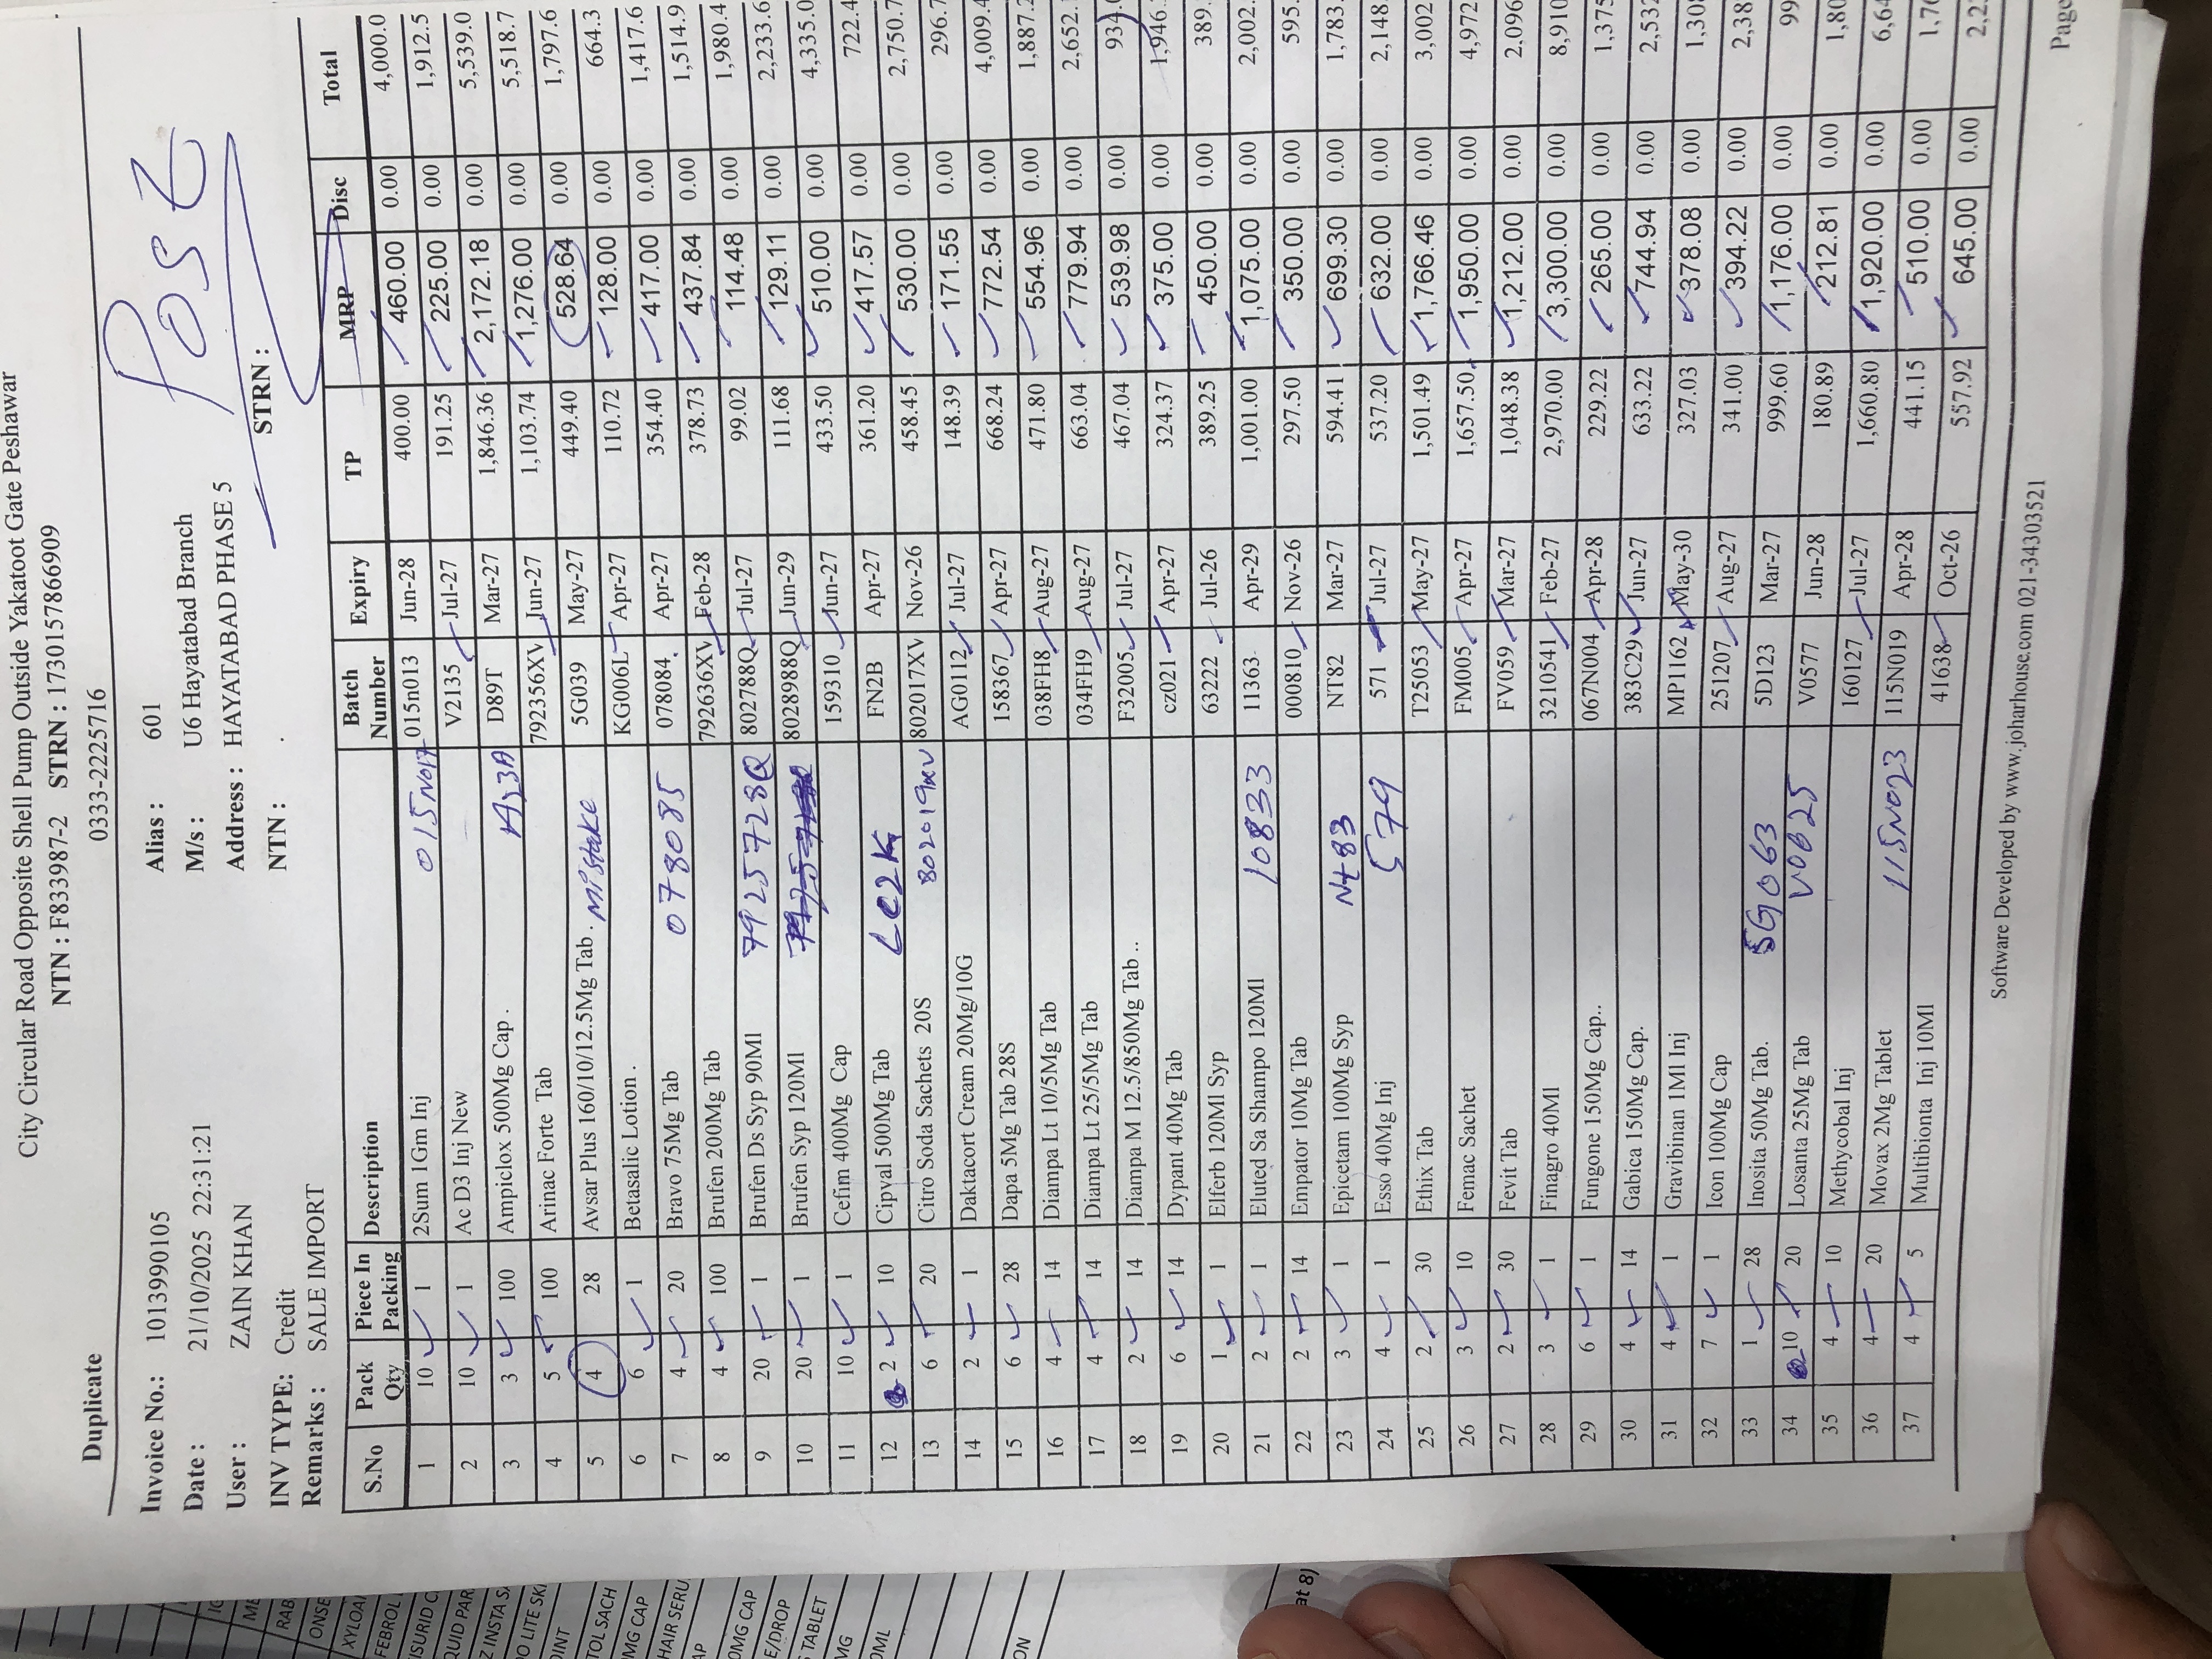 City Circular Road Opposite Shell Pump Outside Yakatoot Gate Peshawar
NTN : F833987-2 STRN : 1730157866909
0333-2225716
Duplicate
Post
Invoice No.: 1013990105 Alias : 601
Date : 21/10/2025 22:31:21 M/s : U6 Hayatabad Branch
User : ZAIN KHAN Address : HAYATABAD PHASE 5
INV TYPE: Credit NTN : . STRN :
Remarks : SALE IMPORT
S.No Pack Qty Piece In Packing Description Batch Number Expiry TP MRP Disc Total
1 10 1 2Sum 1Gm Inj 015N017 015n013 Jun-28 400.00 460.00 0.00 4,000.0
2 10 1 Ac D3 Inj New V2135 Jul-27 191.25 225.00 0.00 1,912.5
3 3 100 Ampiclox 500Mg Cap . D89T Mar-27 1,846.36 2,172.18 0.00 5,539.0
4 5 100 Arinac Forte Tab 792356XV Jun-27 1,103.74 1,276.00 0.00 5,518.7
5 4 28 Avsar Plus 160/10/12.5Mg Tab . Mistake 5G039 May-27 449.40 528.64 0.00 1,797.6
6 6 1 Betasalic Lotion . KG006L Apr-27 110.72 128.00 0.00 664.3
7 4 20 Bravo 75Mg Tab 078085 078084 Apr-27 354.40 417.00 0.00 1,417.6
8 4 100 Brufen 200Mg Tab 792636XV Feb-28 378.73 437.84 0.00 1,514.9
9 20 1 Brufen Ds Syp 90Ml 7925728Q 802788Q Jul-27 99.02 114.48 0.00 1,980.4
10 20 1 Brufen Syp 120Ml 8028988Q Jun-29 111.68 129.11 0.00 2,233.6
11 10 1 Cefim 400Mg Cap 159310 Jun-27 433.50 510.00 0.00 4,335.0
12 2 10 Cipval 500Mg Tab LC2K FN2B Apr-27 361.20 417.57 0.00 722.4
13 6 20 Citro Soda Sachets 20S 802019xv 802017XV Nov-26 458.45 530.00 0.00 2,750.7
14 2 1 Daktacort Cream 20Mg/10G AG0112 Jul-27 148.39 171.55 0.00 296.7
15 6 28 Dapa 5Mg Tab 28S 158367 Apr-27 668.24 772.54 0.00 4,009.4
16 4 14 Diampa Lt 10/5Mg Tab 038FH8 Aug-27 471.80 554.96 0.00 1,887.2
17 4 14 Diampa Lt 25/5Mg Tab 034FH9 Aug-27 663.04 779.94 0.00 2,652.
18 2 14 Diampa M 12.5/850Mg Tab .. F32005 Jul-27 467.04 539.98 0.00 934.0
19 6 14 Dypant 40Mg Tab cz021 Apr-27 324.37 375.00 0.00 1,946.
20 1 1 Elferb 120Ml Syp 63222 Jul-26 389.25 450.00 0.00 389.
21 2 1 Eluted Sa Shampo 120Ml 10833 11363 Apr-29 1,001.00 1,075.00 0.00 2,002.
22 2 14 Empator 10Mg Tab 000810 Nov-26 297.50 350.00 0.00 595.
23 3 1 Epicetam 100Mg Syp Nt83 NT82 Mar-27 594.41 699.30 0.00 1,783.
24 4 1 Esso 40Mg Inj 579 571 Jul-27 537.20 632.00 0.00 2,148.
25 2 30 Ethix Tab T25053 May-27 1,501.49 1,766.46 0.00 3,002
26 3 10 Femac Sachet FM005 Apr-27 1,657.50 1,950.00 0.00 4,972
27 2 30 Fevit Tab FV059 Mar-27 1,048.38 1,212.00 0.00 2,096
28 3 1 Finagro 40Ml 3210541 Feb-27 2,970.00 3,300.00 0.00 8,910
29 6 1 Fungone 150Mg Cap.. 067N004 Apr-28 229.22 265.00 0.00 1,375
30 4 14 Gabica 150Mg Cap. 383C29 Jun-27 633.22 744.94 0.00 2,532
31 4 1 Gravibinan 1Ml Inj MP1162 May-30 327.03 378.08 0.00 1,308
32 7 1 Icon 100Mg Cap 251207 Aug-27 341.00 394.22 0.00 2,38
33 1 28 Inosita 50Mg Tab. 5G063 5D123 Mar-27 999.60 1,176.00 0.00 99
34 10 20 Losanta 25Mg Tab V0625 V0577 Jun-28 180.89 212.81 0.00 1,80
35 4 10 Methycobal Inj 160127 Jul-27 1,660.80 1,920.00 0.00 6,64
36 4 20 Movax 2Mg Tablet 115N023 115N019 Apr-28 441.15 510.00 0.00 1,76
37 4 5 Multibionta Inj 10Ml 41638 Oct-26 557.92 645.00 0.00 2,2
Software Developed by www.joharhouse.com 021-34303521
Page
FEBROL
TOL SACH
MG CAP
HAIR SERU
AP
OMG CAP
E/DROP
TABLET
MG
OML
ON
at 8)